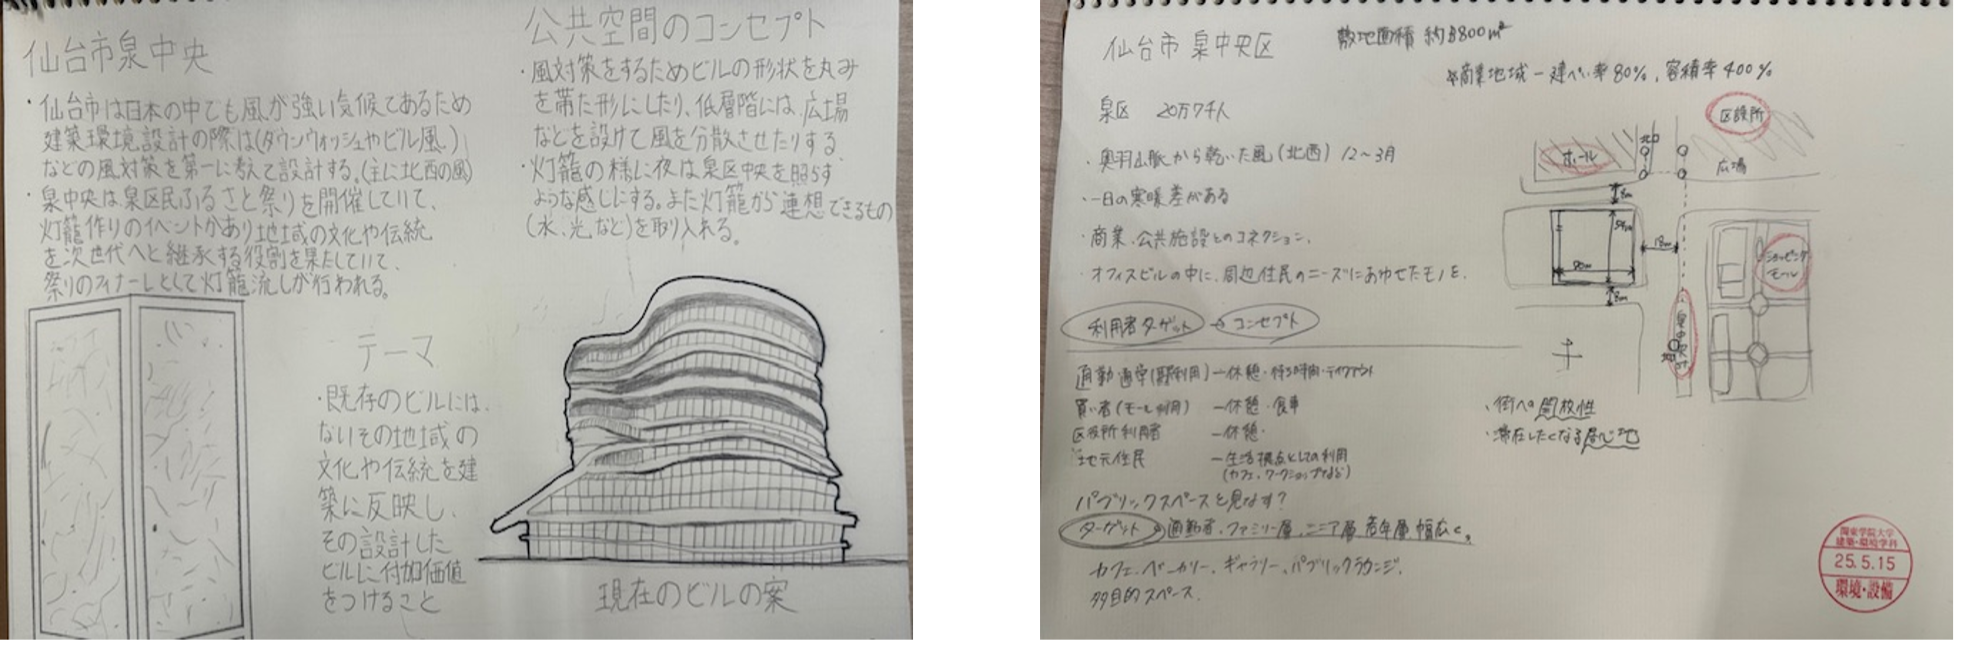 仙台市泉中央
・仙台市は日本の中でも風が強い気候であるため
建築環境設計の際は(ダウンウォッシュやビル風)
などの風対策を第一に考えて設計する。(主に北西の風)
・泉中央は泉区民ふるさと祭りを開催していて、
灯籠作りのイベントがあり地域の文化や伝統
を次世代へと継承する役割を果たしていて、
祭りのフィナーレとして灯籠流しが行われる。
テーマ
・既存のビルには
ないその地域の
文化や伝統を建
築に反映し、
その設計した
ビルに付加価値
をつけること
公共空間のコンセプト
・風対策をするためビルの形状を丸み
を帯た形にしたり、低層階には、広場
などを設けて風を分散させたりする
・灯籠の様に夜は泉区中央を照らす
ような感じにする。また灯籠から連想できるもの
(水、光など)を取り入れる。
現在のビルの案
仙台市 泉中央区
敷地面積 約3800m²
※商業地域－建ぺい率80%、容積率400%
泉区 20万7千人
・奥羽山脈から乾いた風(北西) 12～3月
・一日の寒暖差がある
・商業、公共施設とのコネクション。
・オフィスビルの中に、周辺住民のニーズにあわせたモノを。
利用者ターゲット → コンセプト
通勤通学(駅利用)－休憩・待ち時間・テイクアウト
買い者(モール利用) －休憩・食事
区役所利用者 －休憩・
地元住民 －生活拠点としての利用
(カフェ、ワークショップなど)
パブリックスペースと見なす?
ターゲット → 通勤者、ファミリー層、シニア層、若年層、幅広く。
カフェ、ベーカリー、ギャラリー、パブリックラウンジ、
多目的スペース。
区役所
ホール
広場
18m
8m
ショッピングモール
泉中央駅
・街への開放性
・滞在したくなる居心地
関東学院大学
建築・環境学科
25.5.15
環境・設備